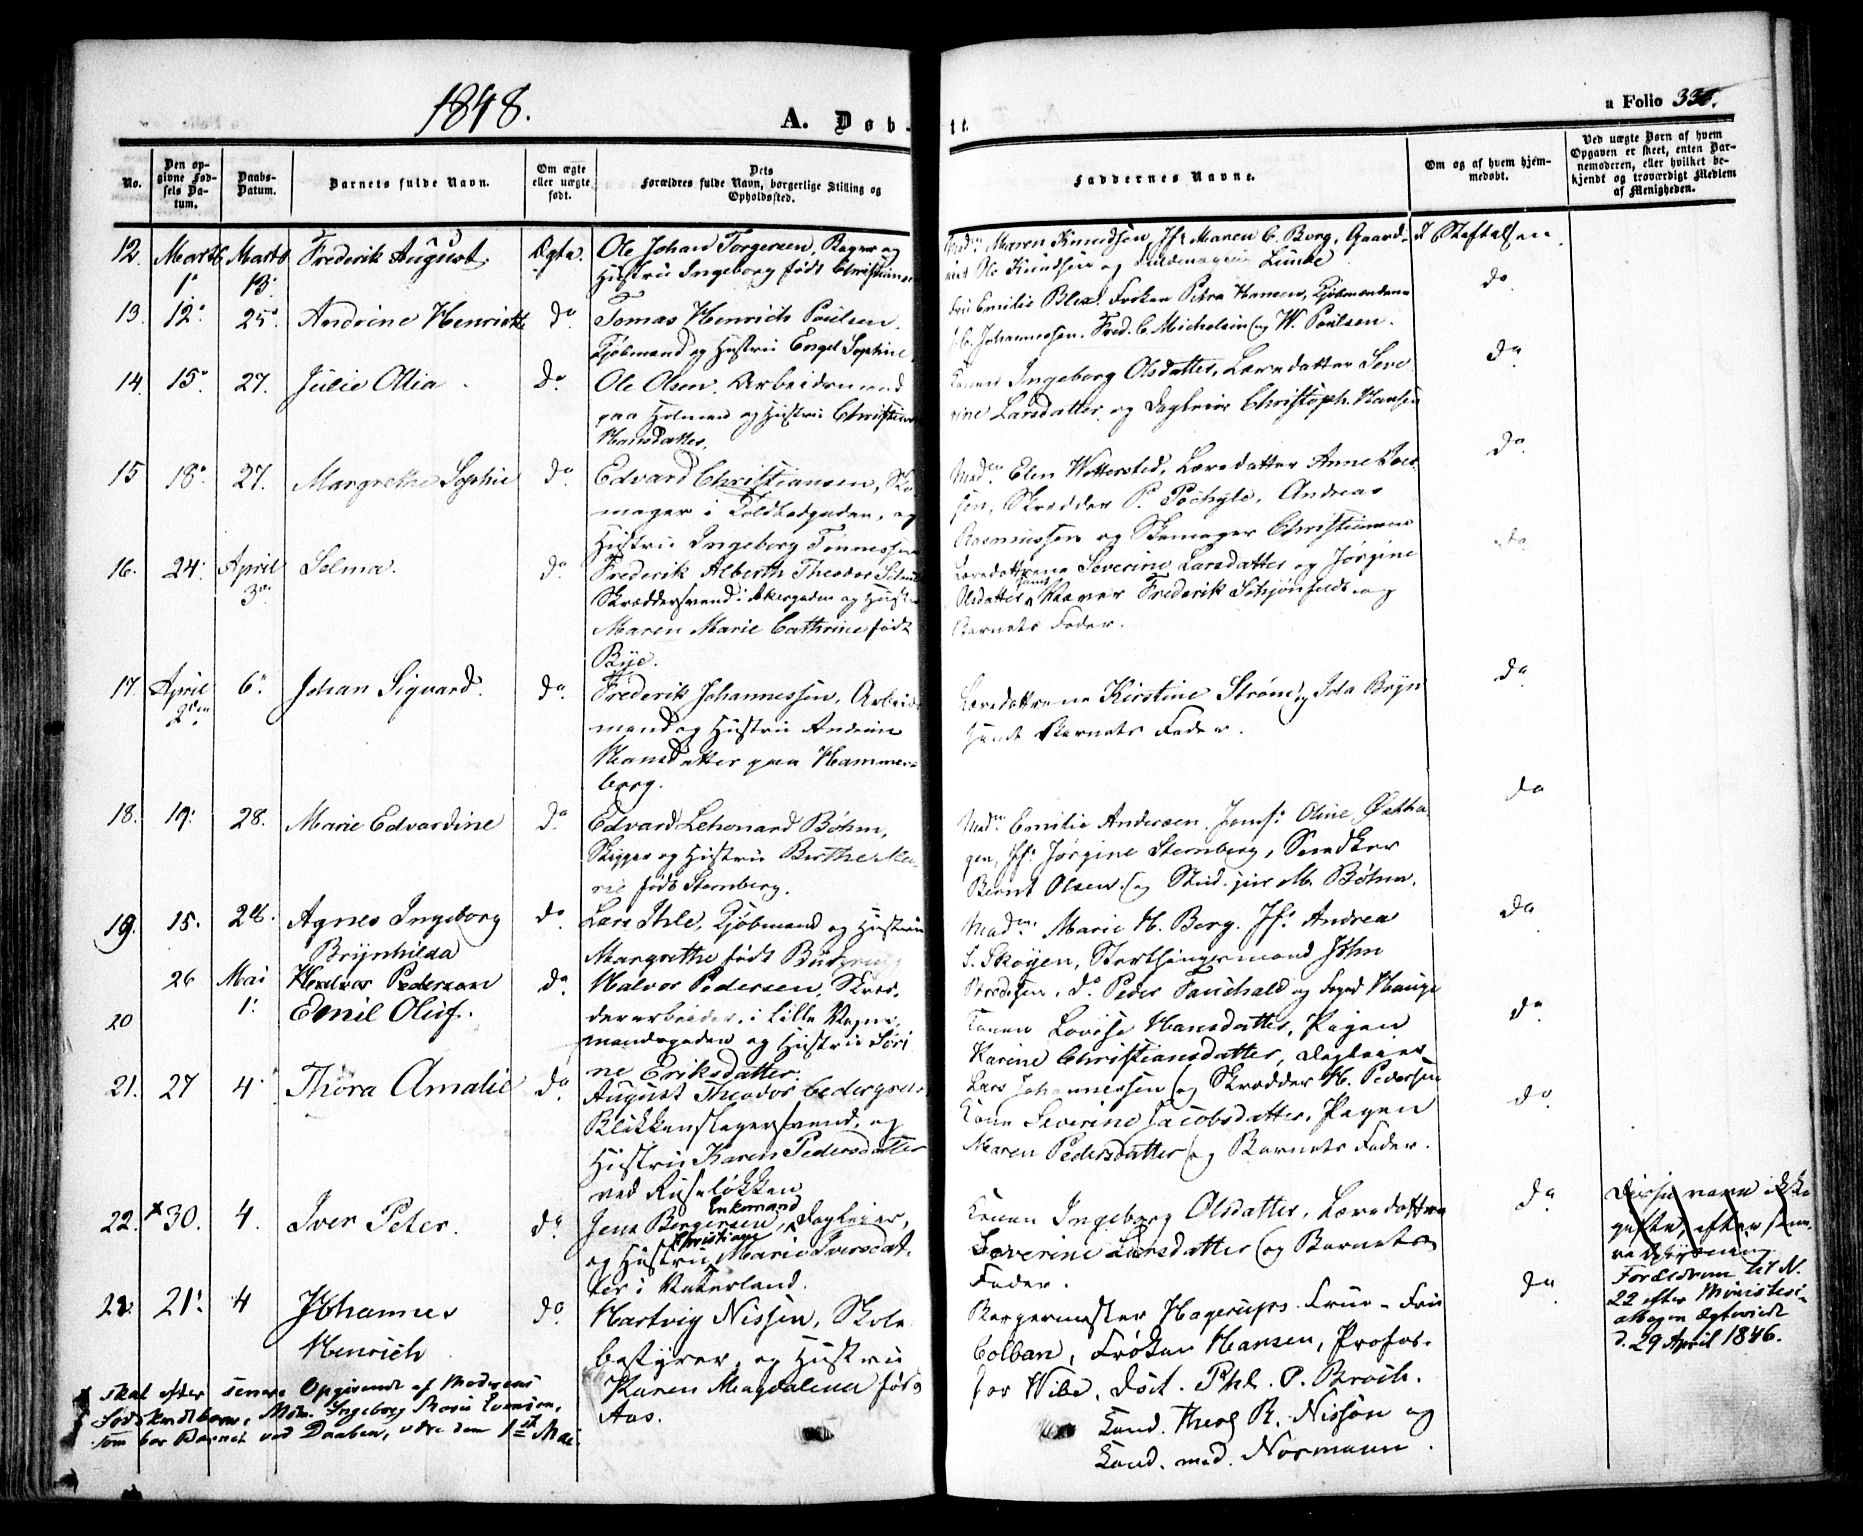 1848.
A. Døb-
te.
a Folio 335.
No.
Den op-
givne Fød-
sels Da-
tum.
Daabs-
Datum.
Barnets fulde Navn.
Om ægte
eller uægte
født.
Dets
Forældres fulde Navn, borgerlige Stilling og
Opholdssted.
Faddernes Navne.
Om og af hvem hjem-
medøbt.
Ved uægte Børn af hvem
Opgaven er skeet, enten Bar-
nemoderen, eller hvilket be-
kjendt og troværdigt Medlem
af Menigheden.
12. Marts Marts Frederik August. Ægte. Ole Johan Torgersen, Bager og
1 13. Hustru Ingeborg født Christiansen
Maren Knudsen, Jfr Maren C. Borg, Gaard-
Ole Knudsen og Lunde
I Stiftelsen.
13. 12. 25. Andrine Henriette do. Tomas Henrich Poulsen.
Kjøbmand og Hustru Engel Sophine
Emilie Blex. Frøken Petra Hansen, Kjøbmændene
Johannessen. Fred. C. Michelsen og W. Poulsen.
do
14. 15. 27. Julie Ottia. do. Ole Olsen. Arbeidsmand
paa Holmen og Hustru Christine
Hansdatter.
Konen Ingeborg Olsdatter, Læredatter Seve
rine Larsdatter og Dagleier Christoph. Hansen
do
15 18. 27. Margrethe Sophie do. Edvard Christiansen, Sko
mager i Toldbodgaden, og
Hustru Ingeborg Tønnessen
Madm. Elen Wettersted, Læredatter Anne
sen, Skrædder P. Andreas
Rasmussen og Skomager Christiansen
do
16. 24. April Selma. do. Frederik Alberth Theodor
3. Skræddersvend i Akersgaden og Hustru
Maren Marie Cathrine født
Bye.
Læredøttrene Severine Larsdatter og Jørgine
Olsdatter, Væver Frederik Schjønfeldt og
Barnets Fader.
do
17. April 6. Johan Sigvard. do. Frederik Johannessen, Arbeids
2den mand og Hustru Andrine
Hansdatter paa Hammers-
borg.
Læredøttrene Kirstine Strøm og Ida Bryn
samt Barnets Fader.
do
18. 19. 28. Marie Edvardine do. Edvard Lehonard Bøhm,
Skipper og Hustru Birthe Ma-
rie født Sternberg.
Madm. Emilie Andersen. Jomf. Oline Østha
gen, Jfr. Jørgine Sternberg, Snedker
Bernt Olsen og Stud. jur M. Bøhm.
do
19. 15. 28. Agnes Ingeborg do. Lars Ihle, Kjøbmand og Hustru
Brynhilda Margrethe født
Madm. Marie H. Berg. Jfr. Andrea
S. Skøyen, Storthingsmand John
do. Peder Fauchald og Foged Hauge
do
20 26 Mai Halvor Pedersen do. Halvor Pedersen, Skræd.
1. Emil Oluf. derarbeider, i Lille Vogn-
mandsgaden og Hustru Sëri
ne Eriksdatter.
Konen Lovise Hansdatter, Pigen
Karine Christiansdatter, Dagleier
Lars Johannessen og Skrædder H. Pedersen
do
21. 27 4. Thora Amalie do. August Theodor Cedergren,
Blikkenslagersvend, og
Hustru Karen Pedersdatter
ved Ruseløkken
Kone Severine Jacobsdatter, Pigen
Maren Pedersdatter og Barnets Fader.
do
22. 30. 4. Iver Peter. do Jens Bergersen, Enkemand Dagleier,
og Hustru Christiane Marie Iversdat.
ter i Vaterland.
Konen Ingeborg Olsdatter, Læredøttrene
Severine Larsdatter og Barnets
Fader.
do
Disse være ikke
gifte, efter sene-
re
Forældrene til N.
22 efter Ministeri-
albogen ægteviede
d. 29 April 1846.
23. 21. 4 Johannes do. Hartvig Nissen, Skole
Henrich bestyrer, og Hustru
Karen Magdalena født
Aas.
Borgermester Hagerups Frue - Fru
Colban, Frøken Hansen, Profes-
sor Wibe, Doct. Phil. P. Broch.
Cand. Theol R. Nissen og
Cand. med. Normann.
do
skal efter senere Opgivende af Moderens
Sødskendebarn, Mdm. Ingeborg Marie Evensen,
som bar Barnet ved Daaben, være den 1ste Mai.